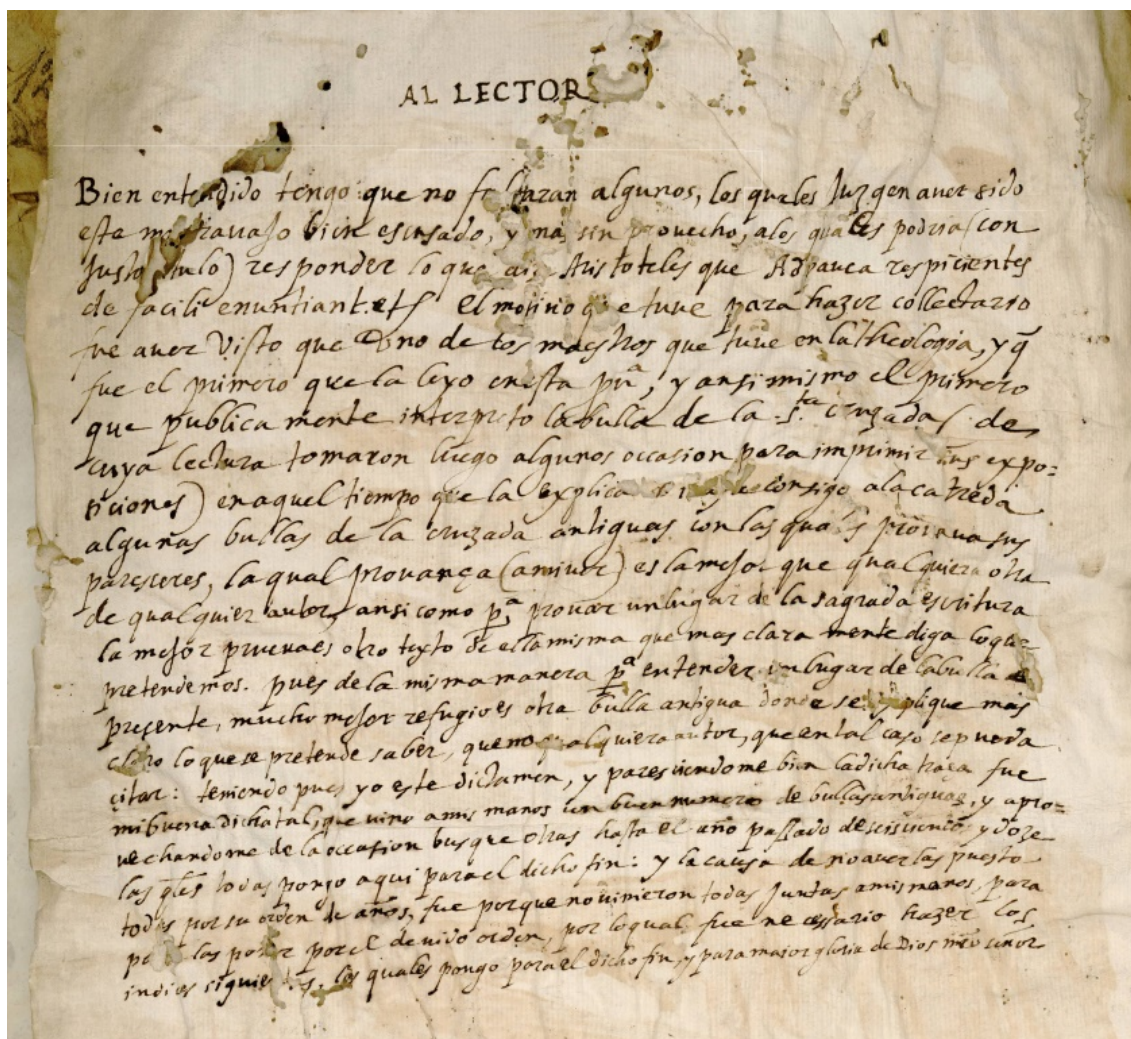 AL LECTOR
Bien entendido tengo que no faltaran algunos, los quales Juzgen auer sido
este mi trauajo bien escusado, y no sin prouecho, a los quales podria (con
Justo titulo) responder lo que dize Aristoteles que Ad pauca respicientes
de facili enuntiant. etc. el motiuo que tuue para hazer collectario
fue auer Visto que Vno de los maestros que tuue en la Theologia, y q̃
fue el primero que la leyo en esta pu.ª, y ansi mismo el primero
que publica mente interpreto la bulla de la S.ta cruzada (de
cuya lectura tomaron luego algunos occasion para imprimir sus expo=
siciones) en aquel tiempo que la explica consigo a la catreda
algunas bullas de la cruzada antiguas con las quales prouaua sus
paresceres, la qual prouança (a mi uer) es la mejor que qualquiera otra
de qualquier autor, ansi como p.ª prouar un lugar de la sagrada escritura
la mejor prueua es otro texto de ella misma que mas clara mente diga lo que
pretendemos. pues de la misma manera p.ª entender un lugar de la bulla
presente, mucho mejor refugio es otra bulla antigua donde se explique mas
claro lo que se pretende saber, que no qualquiera autor, que en tal caso se pueda
çitar: teniendo pues yo este dictamen, y paresciendome bien la dicha traça fue
mi buena dicha tal, que uino a mis manos un buen numero de bullas antiguas, y apro=
uechandome de la occasion busque otras hasta el año passado de seiscientos y doze
las q̃les todas pongo aqui para el dicho fin: y la causa de no auerlas puesto
todas por su orden de años, fue porque no uinieron todas Juntas a mis manos, para
las poner por el deuido orden, por lo qual fue necessario hazer los
indices siguientes, los quales pongo para el dicho fin, y para maior gloria de Dios nr̃o señor